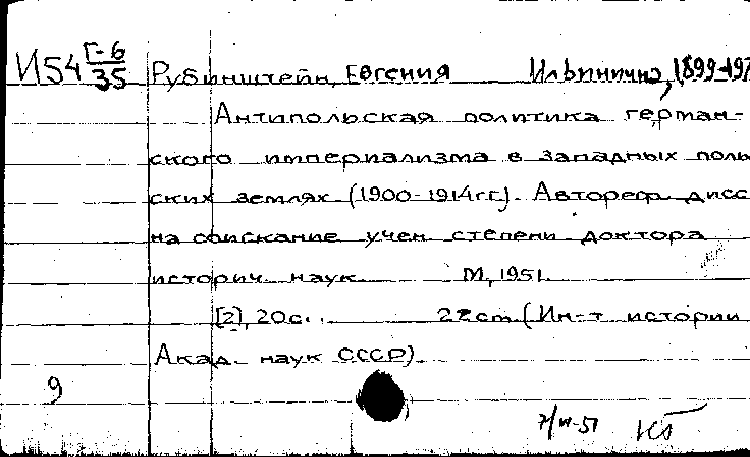 И54 Г-6/35 Рубинштейн, Евгения Ильинична, 1899-197
Антипольская политика герман-
ского империализма в западных поль
ских землях (1900-1914гг). Автореф. дисс
на соискание учен. степени доктора
историч. наук. М, 1951.
[2], 20с. 22см (Ин-т истории
Акад. наук СССР).
9
7/VI-51 КБ